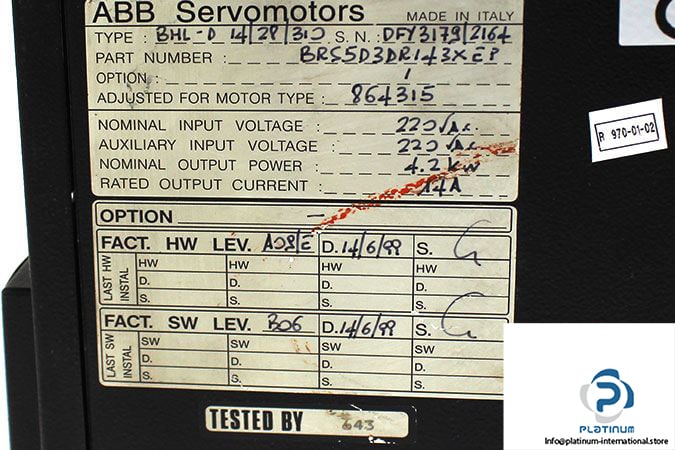 ABB Servomotors MADE IN ITALY
TYPE : BHL-D 14/28/310 S.N. : DFY3179/2164
PART NUMBER : BRS5D3DR143XEP
OPTION : /
ADJUSTED FOR MOTOR TYPE : 864315
NOMINAL INPUT VOLTAGE : 220 VAc.
AUXILIARY INPUT VOLTAGE : 220 VAc.
NOMINAL OUTPUT POWER : 4.2 kW
RATED OUTPUT CURRENT : 14A
OPTION –
FACT. HW LEV. A08/E D. 14/6/99 S.
LAST HW INSTAL
HW HW HW HW
D. D. D. D.
S. S. S. S.
FACT. SW LEV. B06 D. 14/6/99 S.
LAST SW INSTAL
SW SW SW SW
D. D. D. D.
S. S. S. S.
TESTED BY 643
R 970-01-02
PLATINUM
Info@platinum-international.store